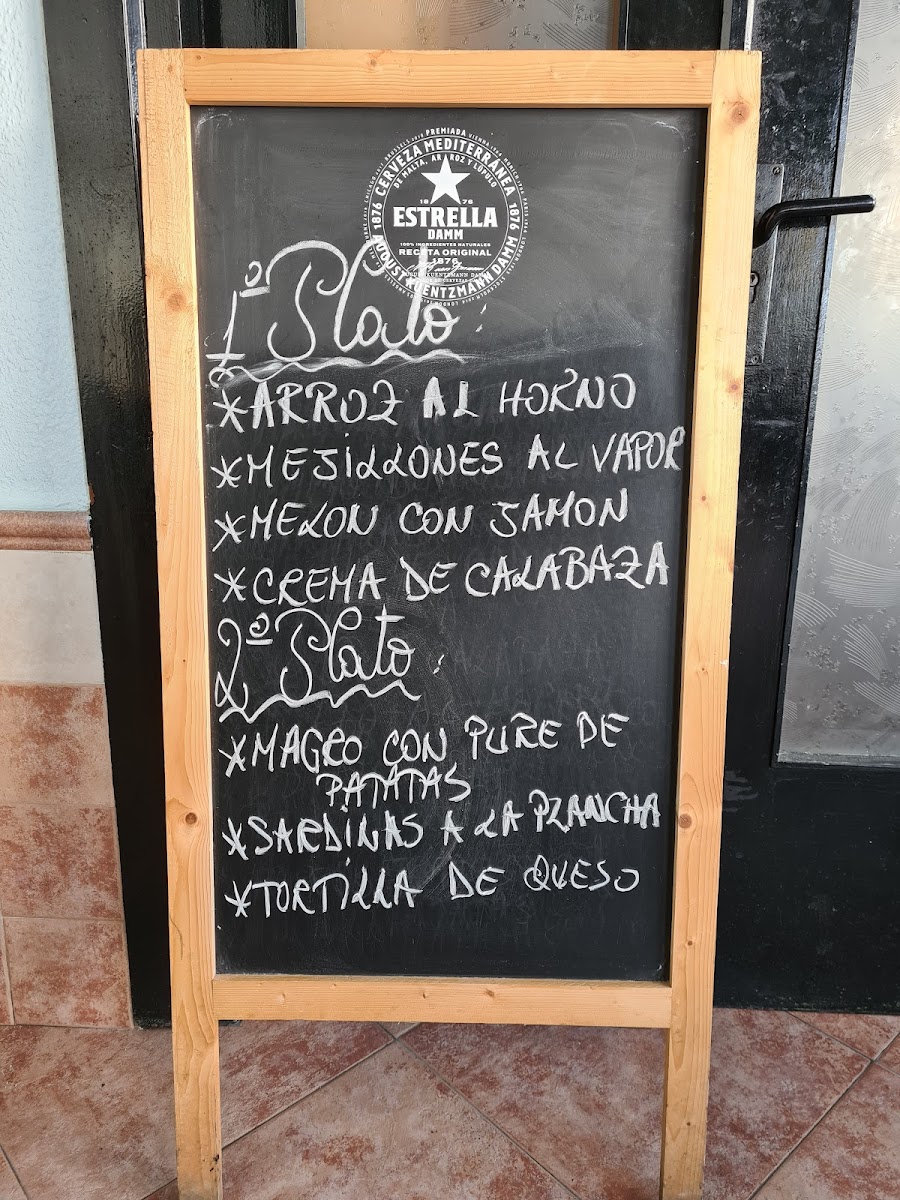 PREMIADA
CERVEZA MEDITERRÁNEA
DE MALTA, ARROZ Y LÚPULO
1876
1876
1876
ESTRELLA
DAMM
100% INGREDIENTES NATURALES
RECETA ORIGINAL
1876
AUGUST KUENTZMANN DAMM
1º Plato:
*ARROZ AL HORNO
*MEJILLONES AL VAPOR
*MELON CON JAMON
*CREMA DE CALABAZA
2º Plato:
*MAGRO CON PURE DE
PATATAS
*SARDINAS A LA PLANCHA
*TORTILLA DE QUESO